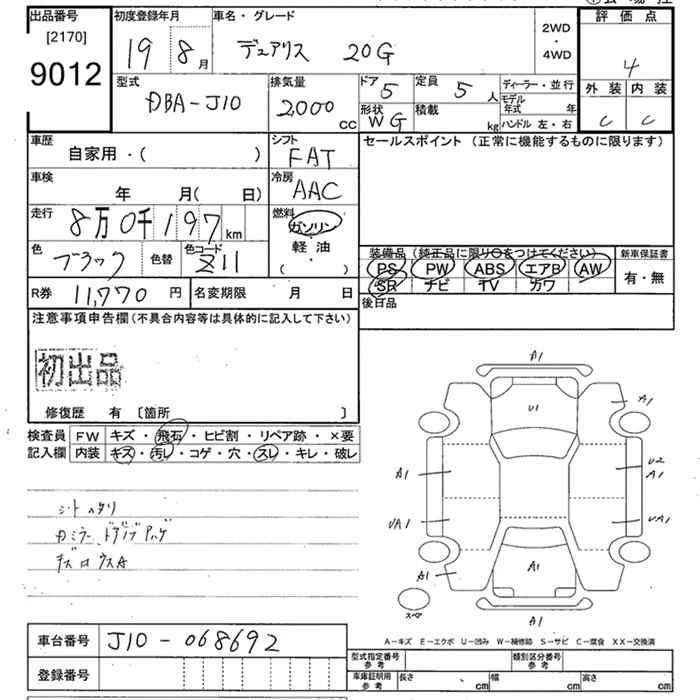 出品番号 初度登録年月 車名・グレード 2WD・4WD 評価点
[2170] 19 8月 デュアリス 20G 4
9012
型式 排気量 ドア 定員 ディーラー・並行 外装 内装
DBA-J10 2000cc 5 5人 モデル年式 年 C C
形状 積載 ハンドル 左・右
WG kg
車歴 シフト セールスポイント (正常に機能するものに限ります)
自家用・( ) FAT
車検 冷房
年 月( 日) AAC
走行 燃料
8万0千197km ガソリン・軽油・( )
色 色替 色コード 装備品 (純正品に限り○をつけてください) 新車保証書
ブラック Z11 PS PW ABS エアB AW 有・無
SR ナビ TV カワ
R券 11,770円 名変期限 月 日 後日品
注意事項申告欄 (不具合内容等は具体的に記入して下さい)
初出品
修復歴 有 [箇所 ]
検査員 FW キズ・飛石・ヒビ割・リペア跡・×要
記入欄 内装 キズ・汚レ・コゲ・穴・スレ・キレ・破レ
A1
U1
A1
A1
U2
A1
UA1
UA1
A1
A1
スペア
A1
シートヘタリ
A-キズ E-エクボ U-凹み W-補修跡 S-サビ C-腐食 XX-交換済
車台番号 J10-068692
登録番号
型式指定番号 参考 類別区分番号 参考
車庫証明用 参考 長さ cm 幅 cm 高さ cm